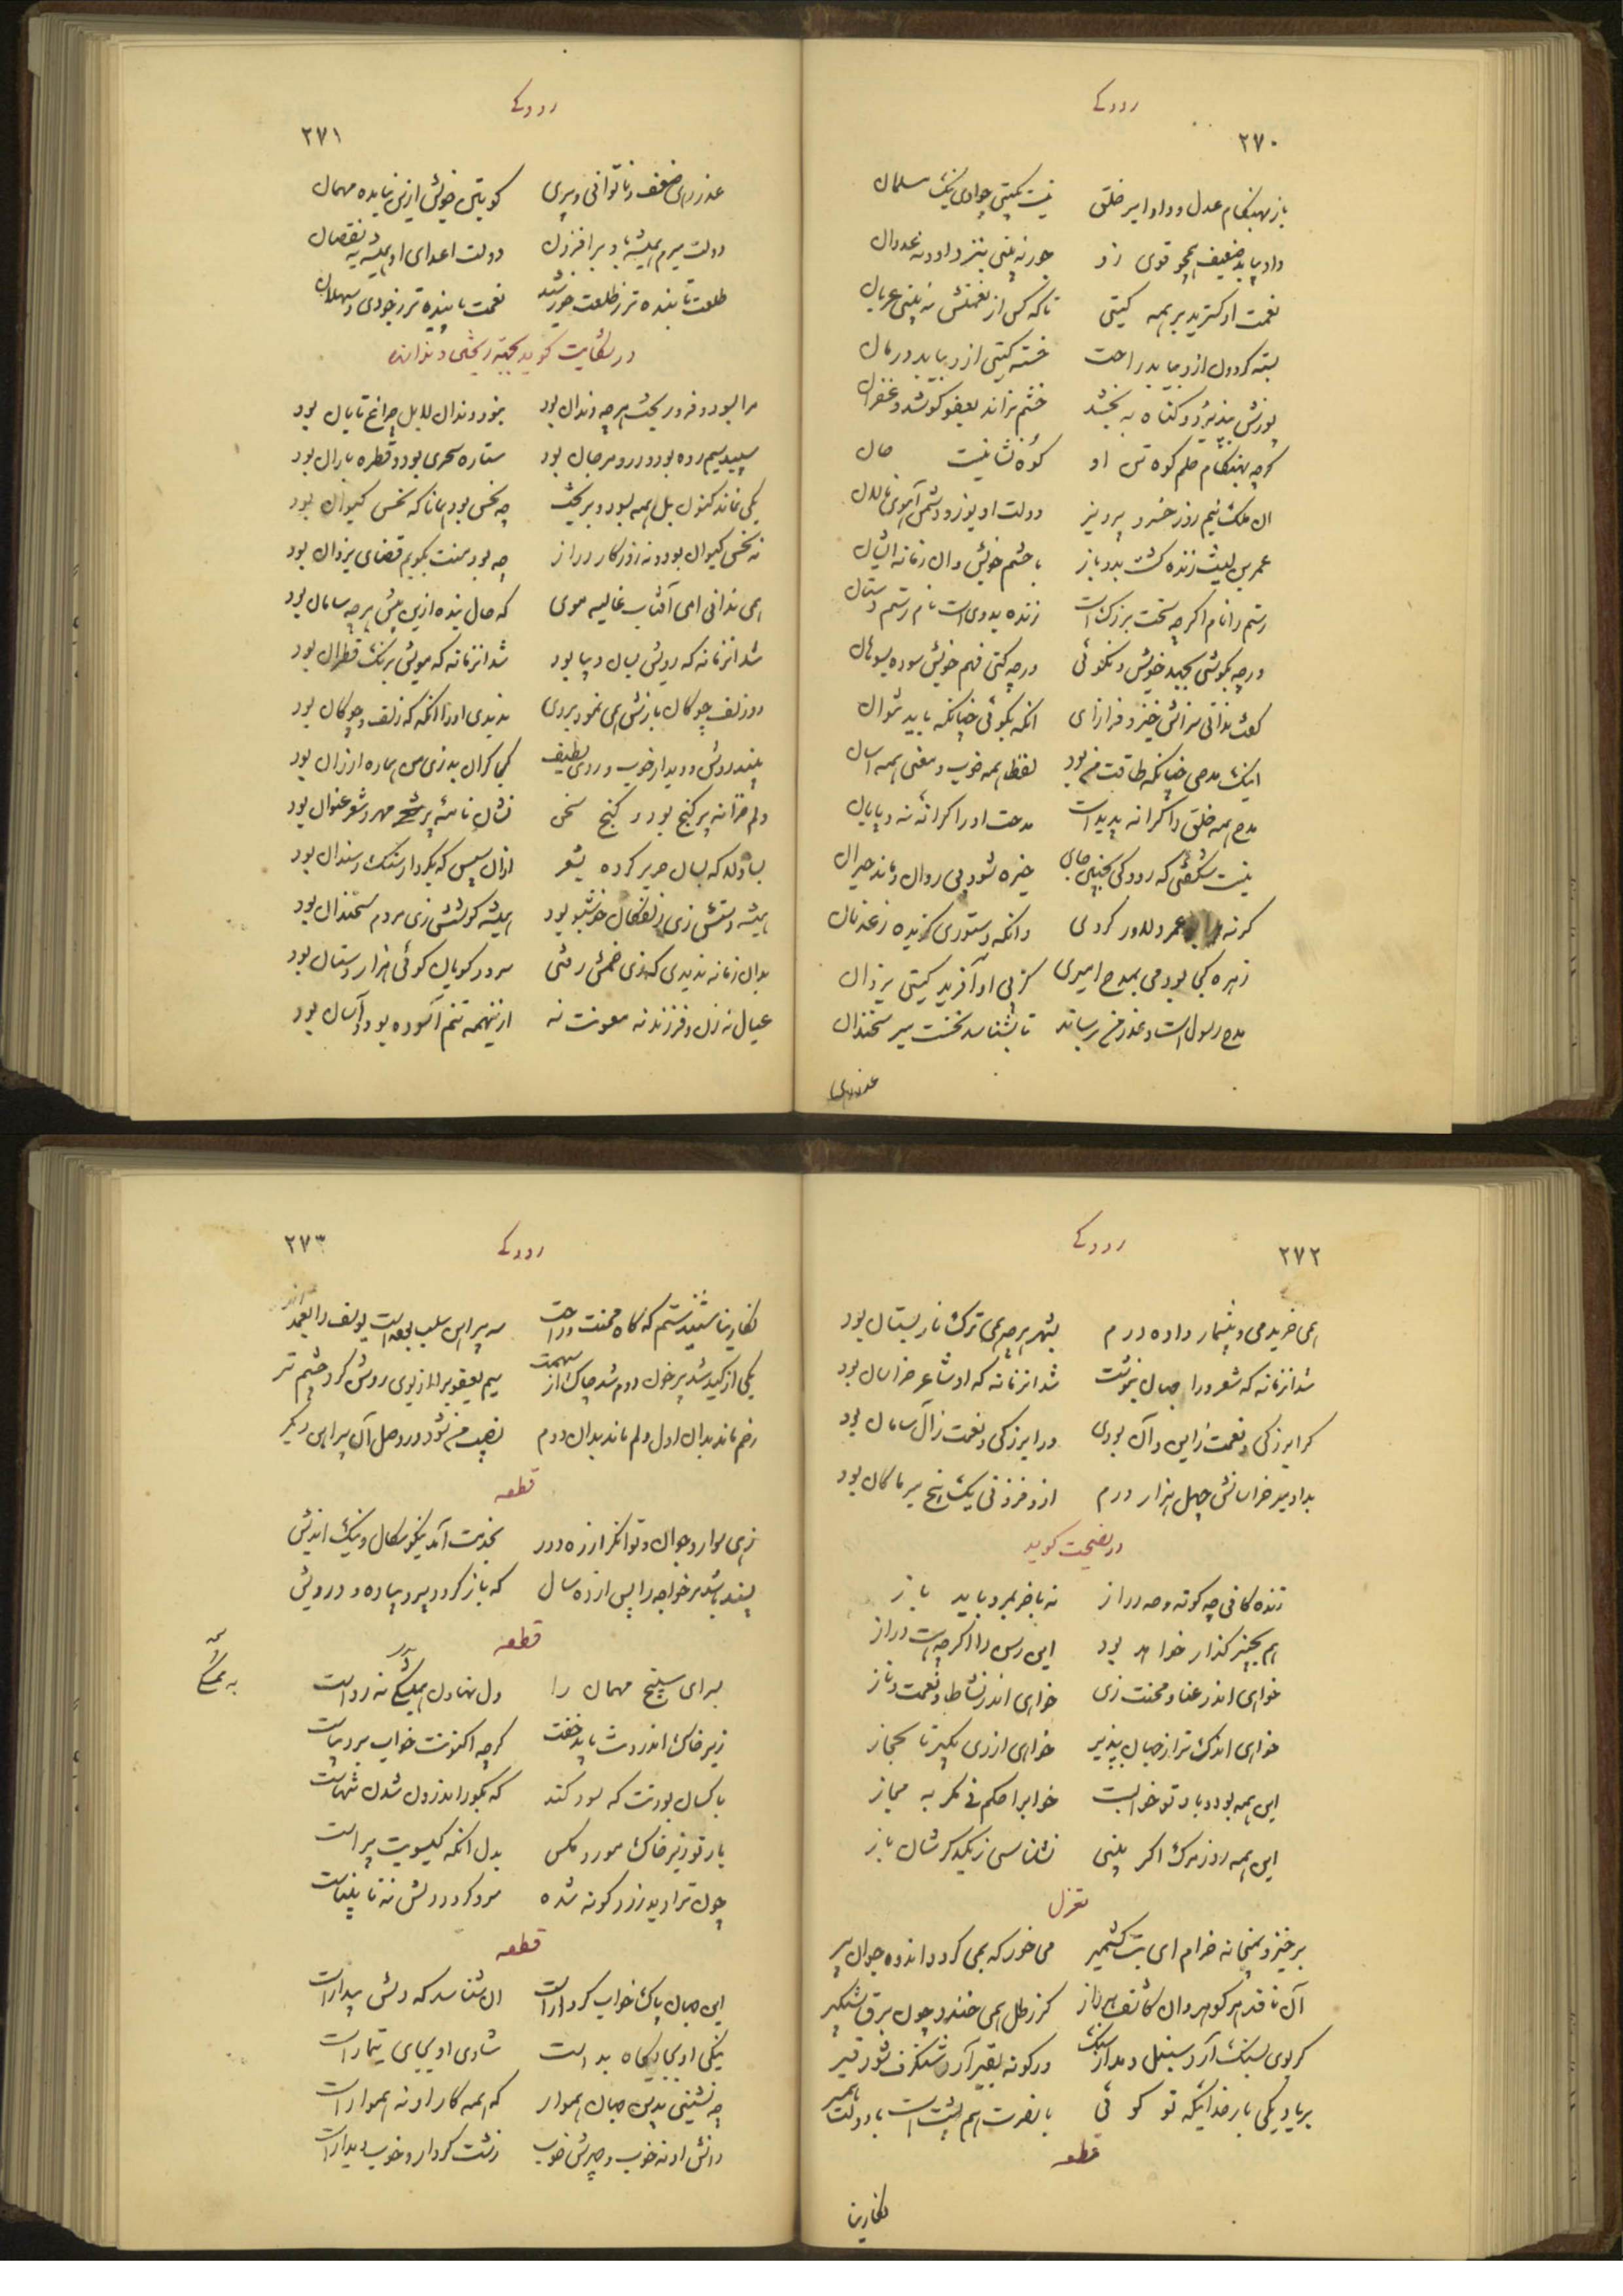 رودکے
۲۷۰
باز بهنگام عدل و داد ابر خلق نیست بگیتی چو او نیک مسلمان
داد بیابد ضعیف همچو قوی زو جور نه بینی بنزد او و نه عدوان
نعمت او گسترید بر همه گیتی تا که کس از نعمتش نه بینی عریان
بسته گردون ازو بیابد راحت خسته گیتی ازو بیابد درمان
پوزش بپذیرد و گناه به بخشد خشم نراند بعفو کوشد و غفران
گرچه بهنگام حلم کوه تن او کوه نشانیست حال
ان ملک نیم روز خسرو پیروز دولت او یوز و دشمن آهوی نالان
عمر بن لیث زنده گشت بدو باز با حشم خویش وان زمانه ایشان
رستم را نام اگرچه سخت بزرگ است زنده بدوی است نام رستم دستان
ورچه بکوشی بجهد خویش و نگوئی ورچه کنی فهم خویش سوده بسوهان
گفت ندانی سزاش خیز و فراز ای انکه بگوئی چنانکه باید نتوان
اینک مدحی چنانکه طاقت من بود لفظ همه خوب و معنی همه اسان
مدح همه خلق را کرانه پدید است مدحت او را کرانه نه و پایان
نیست شگفتی که رودکی بچنین جای خیره شود بی روان و ماند حیران
گرنه مرا بو عمر دلاور کردی وانکه دستوری گزیده ز عدنان
زهره کجا بودمی بمدح امیری کز پی او آفرید گیتی یزدان
مدح رسول است و عذر من برساند تا بشناسد نخست میر سخندان
عذر رهی
رودکے
۲۷۱
عذر رهی ضعف و ناتوانی و پیری کو بتن خویش ازین نیامده مهمان
دولت میرم همیشه باد بر افزون دولت اعدای او همیشه به نقصان
طلعت تابنده تر ز طلعت خورشید نعمت پاینده تر ز جودی و ثهلان
در شکایت گوید
مرا بسود و فرو ریخت هرچه دندان بود نبود دندان لا بل چراغ تابان بود
سپید سیم رده بود و درو مرجان بود ستاره سحری بود و قطره باران بود
یکی نماند کنون بل همه بسود و بریخت چه نحس بود همانا که نحس کیوان بود
نه نحس کیوان بود و نه روزگار دراز چه بود منت بگویم قضای یزدان بود
همی ندانی ای آفتاب غالیه موی که حال بنده ازین پیش بر چه سامان بود
شد انزمانه که رویش بسان دیبا بود شد انزمانه که مویش برنگ قطران بود
دو زلف چوگان بازش همی نمود بروی ندیدی او را انگه که زلف چوگان بود
پسند روش و دیدار خوب و روی لطیف کجا گران بد زی من همواره ارزان بود
دلم خزانه پر گنج بود و گنج سخن نشان نامه پر مهر و شعر عنوان بود
بسا دلا که بسان حریر کرده بشعر ازان سپس که بکردار سنگ و سندان بود
همیشه دستش زی زلفکان خوشبو بود همیشه گوشش زی مردم سخندان بود
بدان زمانه ندیدی که زی چمن رفتی سرود گویان گوئی هزار دستان بود
عیال نه زن و فرزند نه معونت نه ازینهمه تنم آسوده بود و آسان بود
رودکے
۲۷۲
همی خرید می و بیشمار داده درم بشهر هرچه همی ترک نار پستان بود
شد انزمانه که شعر ورا جهان بنوشت شد انزمانه که او شاعر خراسان بود
کرا بزرگی و نعمت ز این و آن بودی ورا بزرگی و نعمت ز آل سامان بود
بداد میر خراسانش چهل هزار درم ازو فزونی یک پنج میر ماکان بود
در نصیحت گوید
زندگانی چه کوته و چه دراز نه باخر بمرد باید باز
هم بچنبر گذار خواهد بود این رسن را اگرچه هست دراز
خواهی اندر عنا و محنت زی خواهی اندر نشاط و نعمت و ناز
خواهی اندک تر از جهان بپذیر خواهی از ری بگیر تا بحجاز
این همه بود و باد تو خوابست خوابرا حکم نی مگر به مجاز
این همه روز مرگ اگر بینی نشناسی ز یکدگرشان باز
تغزل
برخیز و بمیخانه خرام ای بت کشمیر می خور که بمی گردد اندوه جوان پیر
گر بوی بسنگ آرد سنبل دمد از سنگ ور گونه بقیر آرد شنگرف شود قیر
بر یاد یکی بار خدائیکه تو گوئی با نصرت هم پشت است با دولت همشیر
قطعه
نگارینا
رودکے
۲۷۳
نگارینا شنیدستم که گاه محنت و راحت سه پیراهن سلب بوده است یوسف را بعمر اندر
یکی از کید شد پر خون دوم شد چاک از تهمت سیم یعقوب را از بوی روشن کرد چشم تر
رخم ماند بدان اول دلم ماند بدان دوم نصیب من شود در وصل آن پیراهن دیگر
قطعه
زهی سوار و جوان و توانگر از ره دور بخدمت آمد نیکو سگال و نیک اندیش
پسند باشد مر خواجه را پس از ده سال که باز گردد پیر و پیاده و درویش
قطعه
بسرای سپنج مهمان را دل نهادن همیشگی نه رواست
زیر خاک اندرونت باید خفت گرچه اکنونت خواب بر دیباست
با کسان بودنت که سود کند که بگور اندرون شدن تنهاست
یار تو زیر خاک مور و مگس بدل انکه گیسویت پیراست
چون ترا دید زرد گونه شده سرد گردد دلش نه نابیناست
قطعه
این جهان پاک خواب کردار است ان شناسد که دلش بیدار است
نیکی او بجایگاه بد است شادی او بجای تیمار است
چه نشینی بدین جهان هموار که همه کار او نه هموار است
دانش او نه خوب و چهرش خوب زشت کردار و خوب دیدار است